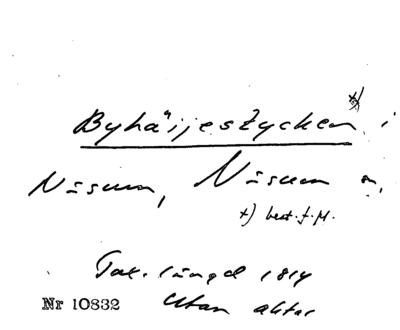 Byhäijesstycken x) i
Näsum, Näsum s,
x) best. f. pl.
Tax. längd 1814
Nr 10832 Utan aktnr